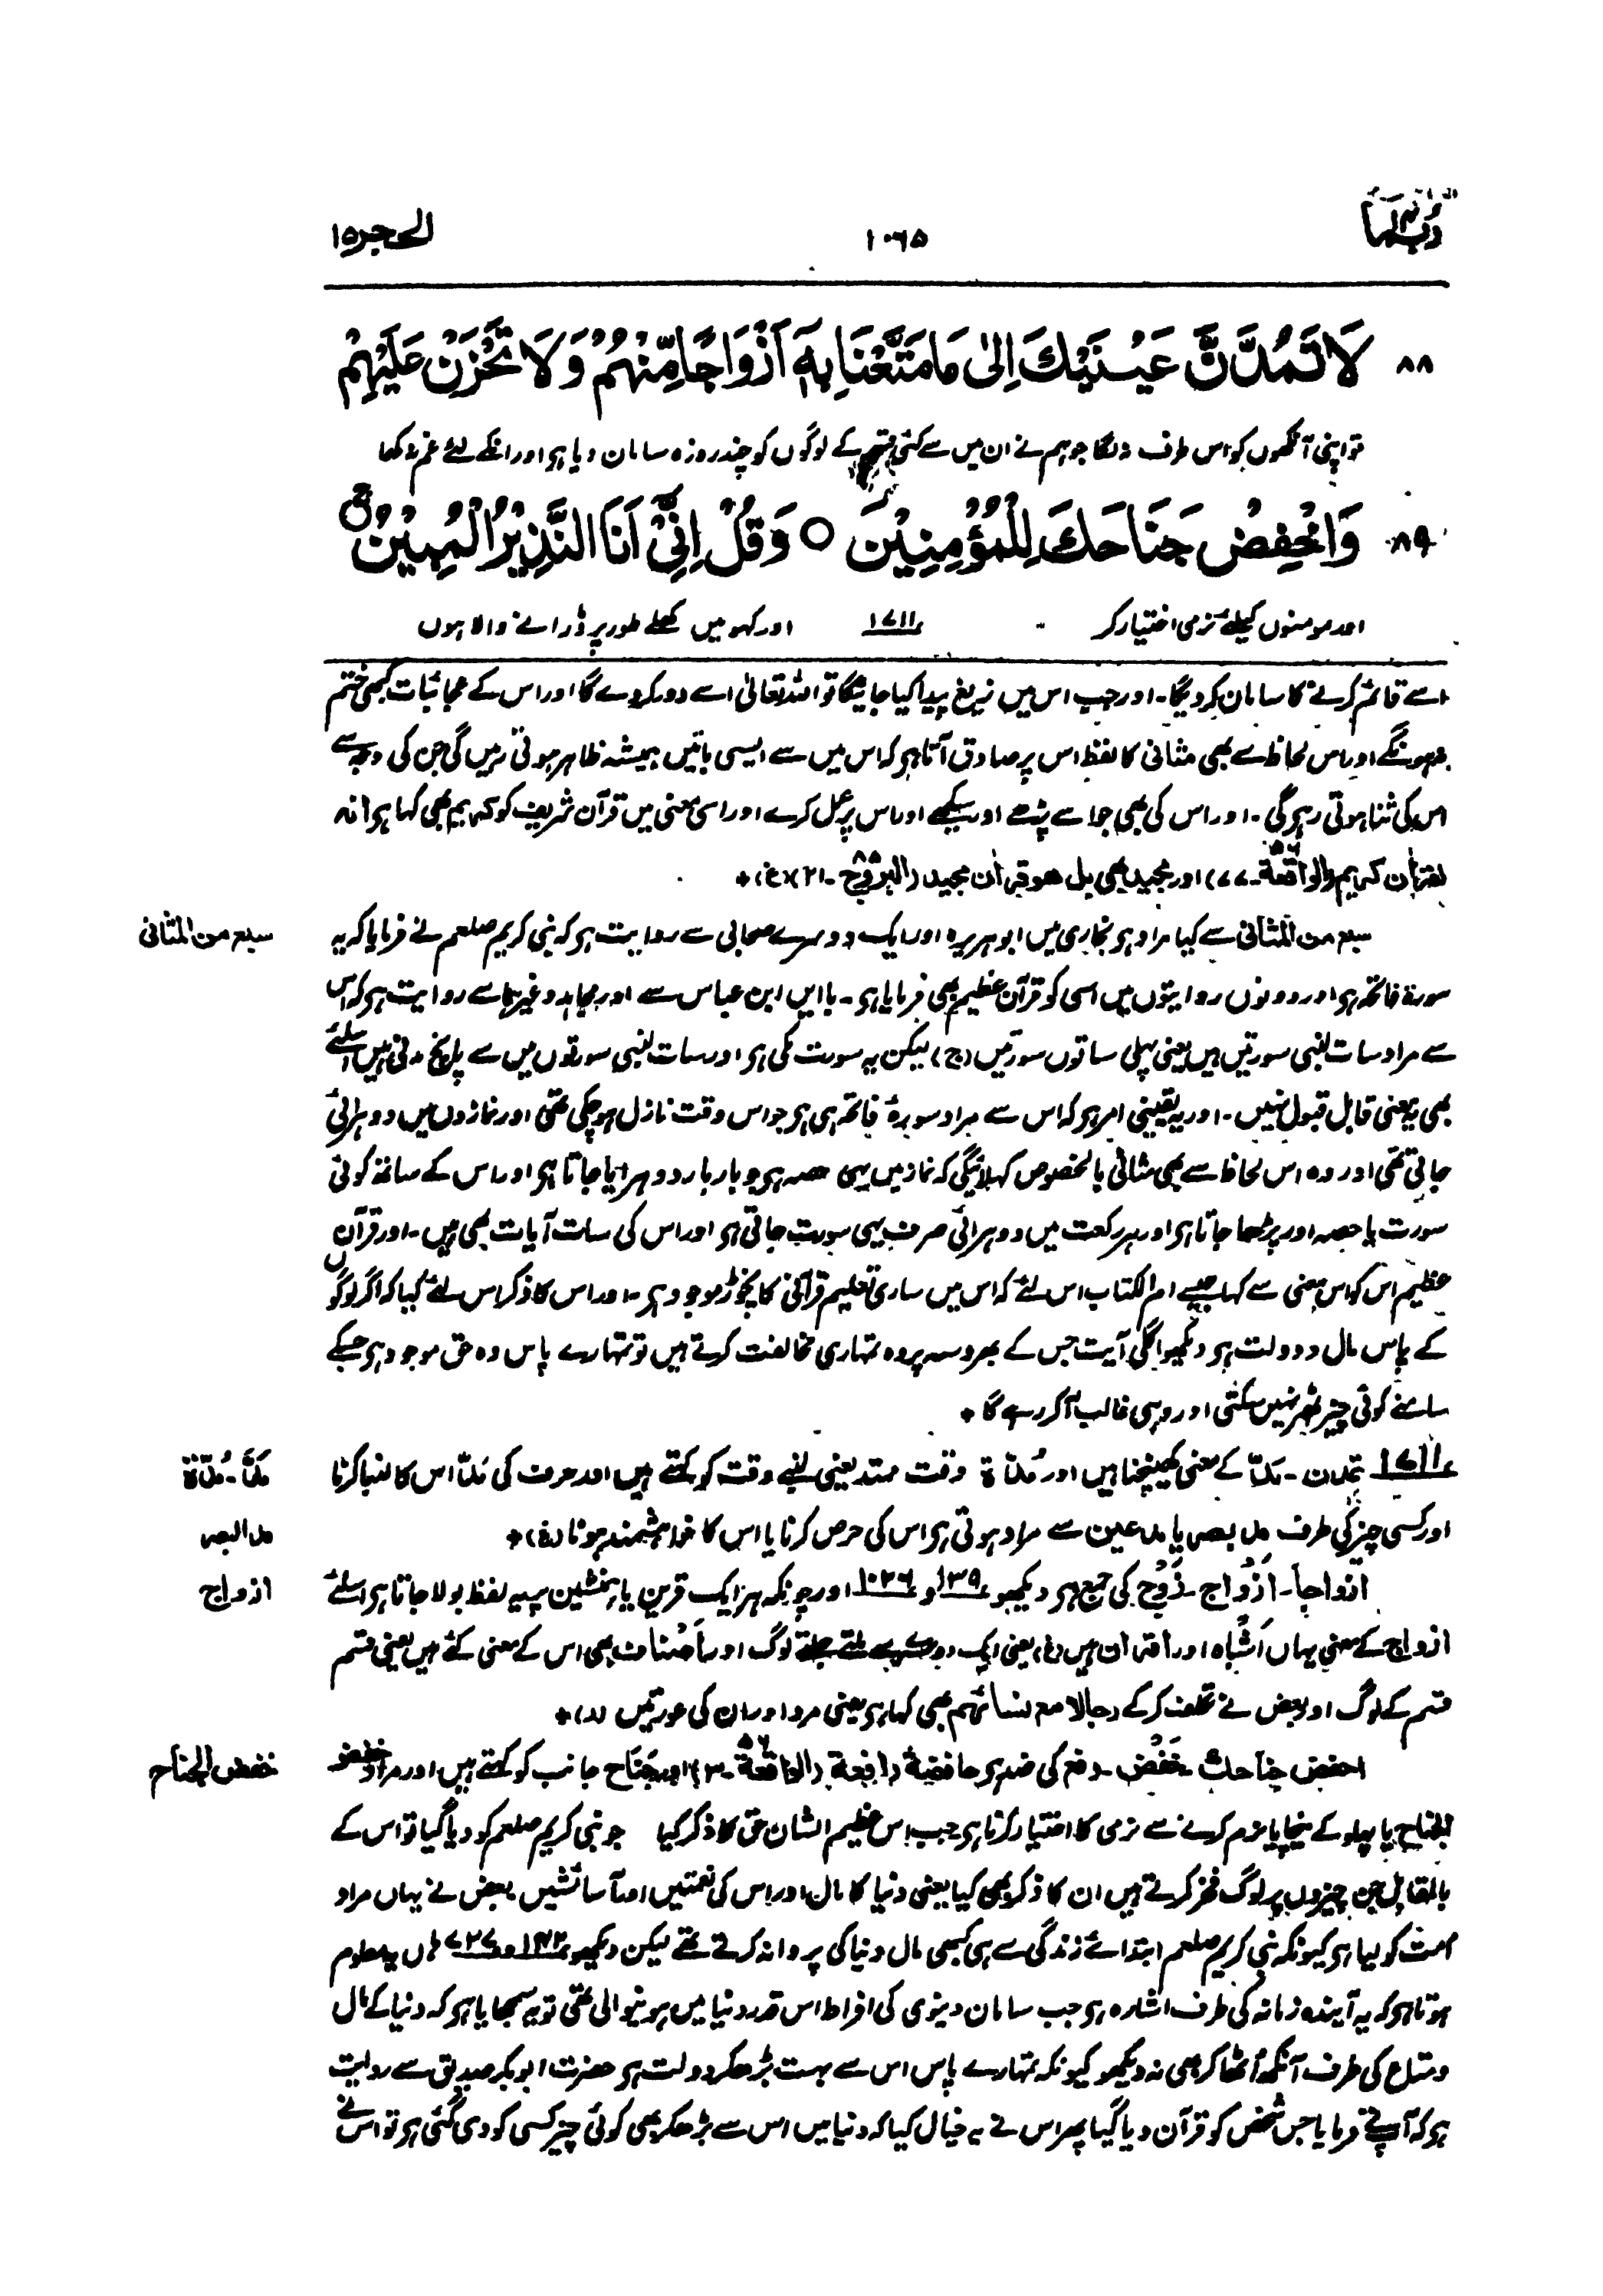 ربما ۱۴
۱۰۶۵
الحجر ۱۵
۸۸ لَا تَمُدَّنَّ عَيْنَيْكَ اِلٰى مَا مَتَّعْنَا بِهٖٓ اَزْوَاجًا مِّنْهُمْ وَلَا تَحْزَنْ عَلَيْهِمْ
تو اپنی آنکھوں کو اس طرف نہ لگا جو ہم نے ان میں سے کئی قسم کے لوگوں کو چند روزہ سامان دیا ہر اور انکے لئے غم نہ کھا
۸۹ وَاخْفِضْ جَنَاحَكَ لِلْمُؤْمِنِيْنَ ○ وَقُلْ اِنِّيْٓ اَنَا النَّذِيْرُ الْمُبِيْنُ ○
اور مومنوں کیلئے نرمی اختیار کر ۱۷۱۱ اور کہو میں کھلے طور پر ڈرانے والا ہوں
اسے قائم کرنے کا سامان کر دیگا۔ اور جب اس میں زیغ پیدا کیا جائیگا تو اللہ تعالیٰ اسے دور کر دے گا اور اس کے عجائبات کبھی ختم
نہ ہونگے اور اس لحاظ سے بھی مثانی کا لفظ اس پر صادق آتا ہر کہ اس میں سے ایسی باتیں ہمیشہ ظاہر ہوتی رہیں گی جن کی وجہ سے
اس کی ثنا ہوتی رہر گی۔ اور اس کی بھی جو اسے پڑھے اور سیکھے اور اس پر عمل کرے اور اسی معنی میں قرآن شریف کو کریم بھی کہا ہر انہ
لقران کریم (الواقعة ۵۶۔۷۷) اور مجید بھی بل هو قران مجید (البروج ۸۵۔۲۱) (غ)٭
سبع من المثانی سے کیا مراد ہر بخاری میں ابوہریرہ اور ایک دوسرے صحابی سے روایت ہر کہ نبی کریم صلعم نے فرمایا کہ یہ
سبع من المثانی
سورۃ فاتحہ ہر اور دونوں روایتوں میں اسی کو قرآن عظیم بھی فرمایا ہر۔ باایں ابن عباس سے اور مجاہد وغیرہما سے روایت ہر کہ اس
سے مراد سات لنبی سورتیں ہیں یعنی پہلی ساتوں سورتیں (ج) لیکن یہ سورت مکی ہر اور سات لنبی سورتوں میں سے پانچ مدنی ہیں اسلئے
بھی یہ معنی قابل قبول نہیں۔ اور یہ یقینی امر ہر کہ اس سے مراد سورۂ فاتحہ ہی ہر جو اس وقت نازل ہو چکی تھی اور نمازوں میں دوہرائی
جاتی تھی اور وہ اس لحاظ سے بھی مثانی بالخصوص کہلائیگی کہ نماز میں یہی حصہ ہر جو بار بار دوہرایا جاتا ہر اور اس کے ساتھ کوئی
سورت یا حصہ اور پڑھا جاتا ہر اور ہر رکعت میں دوہرائی صرف یہی سورت جاتی ہر اور اس کی سات آیات بھی ہیں۔ اور قرآن
عظیم اس کو اس معنی سے کہا جیسے ام الکتاب اس لئے کہ اس میں ساری تعلیم قرآنی کا نچوڑ موجود ہر۔ اور اس کا ذکر اس لئے کیا کہ اگر لوگوں
کے پاس مال و دولت ہر دیکھو اگلی آیت جس کے بھروسہ پر وہ تمہاری مخالفت کرتے ہیں تو تمہارے پاس وہ حق موجود ہر جسکے
سامنے کوئی چیز ٹھہر نہیں سکتی اور وہی غالب آکر رہے گا٭
۱۷۱۱ تمدن۔ مَدّ کے معنی کھینچنا ہیں اور مُدّة وقت ممتد یعنی لنبے وقت کو کہتے ہیں اور حرف کی مَدّ اس کا لنبا کرنا
مَدّ۔ مُدّة
اور کسی چیز کی طرف مد بصر یا مد عین سے مراد ہوتی ہر اس کی حرص کرنا یا اس کا خواہشمند ہونا (غ)٭
مد البصر
ازواجاً۔ اَزْوَاج۔ زَوْج کی جمع ہر دیکھو ۱۳۵۹ و ۱۰۲۶ اور چونکہ ہر ایک قرین یا ہمنشین پر یہ لفظ بولا جاتا ہر اسلئے
ازواج
ازواج کے معنی یہاں اَشْباہ اور اَقْران ہیں (غ) یعنی ایک دوسرے سے ملتے جلتے لوگ اور اَصْناف بھی اس کے معنی کئے ہیں یعنی قسم
قسم کے لوگ اور بعض نے تکلف کر کے رجالا مع نسائهم بھی کہا ہر یعنی مرد اور ان کی عورتیں (د)٭
اخفض جناحك۔ خَفْض۔ رفع کی ضد ہر خافضة رافعة (الواقعة ۵۶۔۳) اور جَنَاح جانب کو کہتے ہیں اور مراد خفض
خفض الجناح
الجناح یا پہلو کے نیچا یا نرم کرنے سے نرمی کا اختیار کرنا ہر جب اس عظیم الشان حق کا ذکر کیا جو نبی کریم صلعم کو دیا گیا تو اس کے
بالمقابل جن چیزوں پر لوگ فخر کرتے ہیں ان کا ذکر بھی کیا یعنی دنیا کا مال اور اس کی نعمتیں اور آسائشیں بعض نے یہاں مراد
امت کو لیا ہر کیونکہ نبی کریم صلعم ابتدائے زندگی سے ہی کبھی مال دنیا کی پروا نہ کرتے تھے لیکن دیکھو ۱۴۲ و ۷۲۷ ہاں یہ معلوم
ہوتا ہر کہ یہ آیندہ زمانہ کی طرف اشارہ ہر جب سامان دنیوی کی افراط اس قدر دنیا میں ہونیوالی تھی تو یہ سمجھایا ہر کہ دنیا کے مال
ومتاع کی طرف آنکھ اُٹھا کر بھی نہ دیکھو کیونکہ تمہارے پاس اس سے بہت بڑھکر دولت ہر حضرت ابوبکر صدیق سے روایت
ہر کہ آپ نے فرمایا جس شخص کو قرآن دیا گیا پھر اس نے یہ خیال کیا کہ دنیا میں اس سے بڑھکر بھی کوئی چیز کسی کو دی گئی ہر تو اس نے